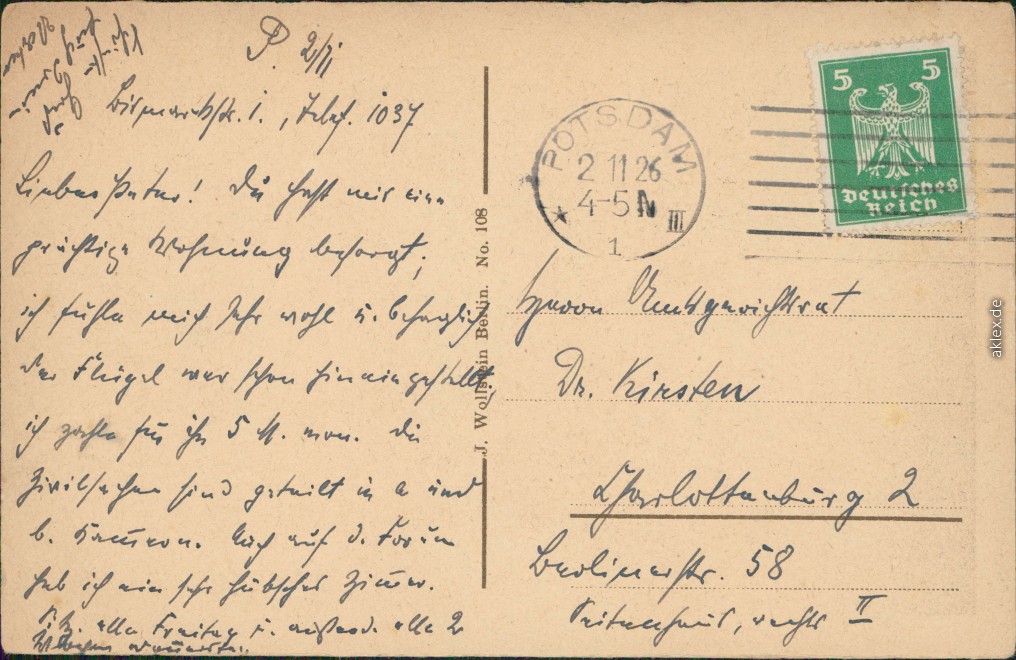 P. 2/11
Bismarckstr. 1., Telef. 1037
Lieber Peter! Du hast mir eine
prächtige Wohnung besorgt;
ich fühle mich sehr wohl u. behaglich,
der Flügel war schon hineingestellt,
ich zahle für ihn 5 M. mon. Die
Zivilsachen sind geteilt in a und
b. Kammern. Auch auf d. Forum
hab ich ein sehr hübsches Zimmer.
alle Freitag u. außerd. alle 2
J. Wollstein Berlin. No. 108
POTSDAM
2 11 26
4-5 N
III
1
5 5
Deutsches
Reich
Herrn Amtsgerichtsrat
Dr. Kirsten
Charlottenburg 2
Berlinerstr. 58
Seitenhaus, rechts II
aklex.de